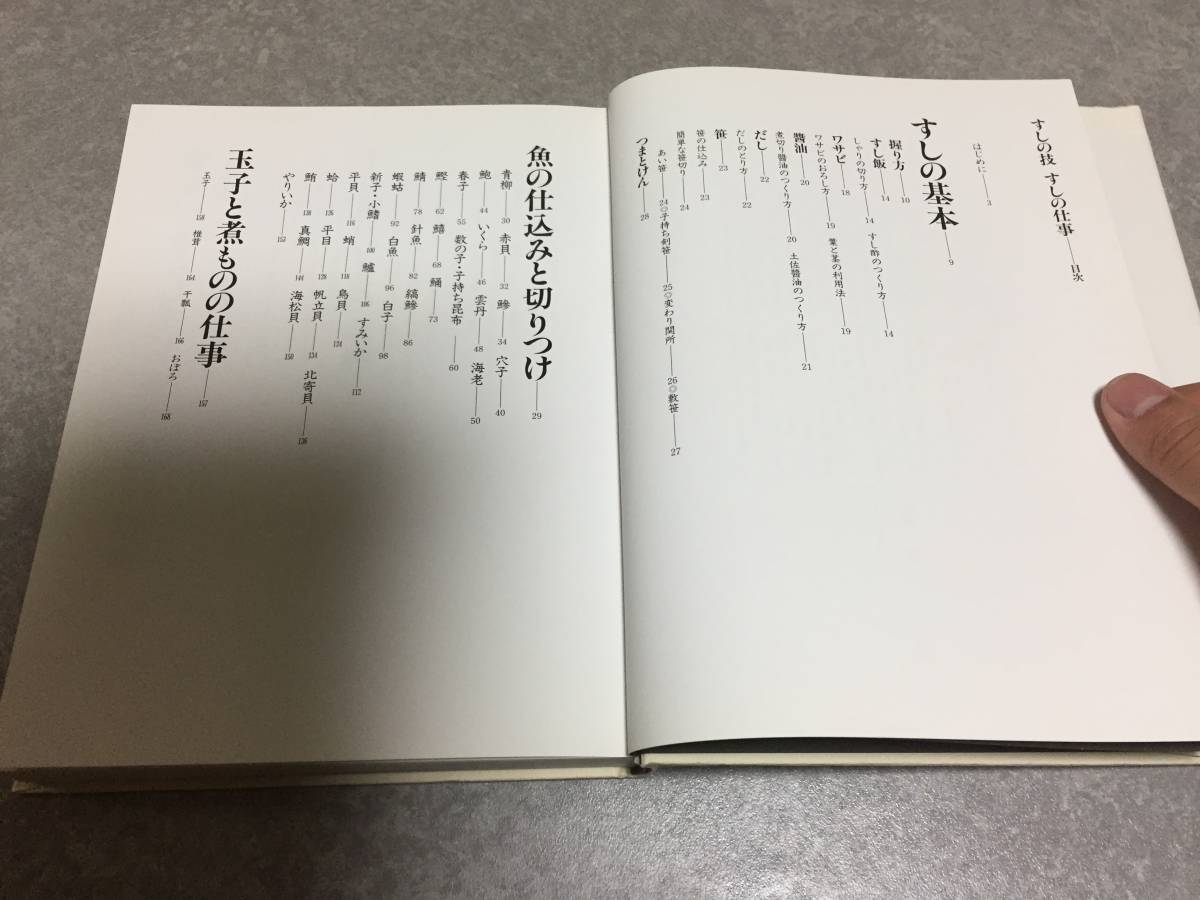 すしの技 すしの仕事――目次
はじめに――3
すしの基本――9
握り方――10
すし飯――14
しゃりの切り方――14 すし酢のつくり方――14
ワサビ――18
ワサビのおろし方――19 葉と茎の利用法――19
醬油――20
煮切り醬油のつくり方――20 土佐醬油のつくり方――21
だし――22
だしのとり方――22
笹――23
笹の仕込み――23
簡単な笹切り――24
あい笹――24◎子持ち剣笹――25◎変わり関所――26◎敷笹――27
つまとけん――28
魚の仕込みと切りつけ――29
青柳――30 赤貝――32 鰺――34 穴子――40
鮑――44 いくら――46 雲丹――48 海老――50
春子――55 数の子・子持ち昆布――60
鰹――62 鱚――68 鯒――73
鯖――78 針魚――82 縞鰺――86
蝦蛄――92 白魚――96 白子――98
新子・小鰭――100 鱸――106 すみいか――112
平貝――116 蛸――118 鳥貝――124
蛤――126 平目――128 帆立貝――134 北寄貝――136
鮪――138 真鯛――144 海松貝――150
やりいか――152
玉子と煮ものの仕事――157
玉子――158 椎茸――164 干瓢――166 おぼろ――168